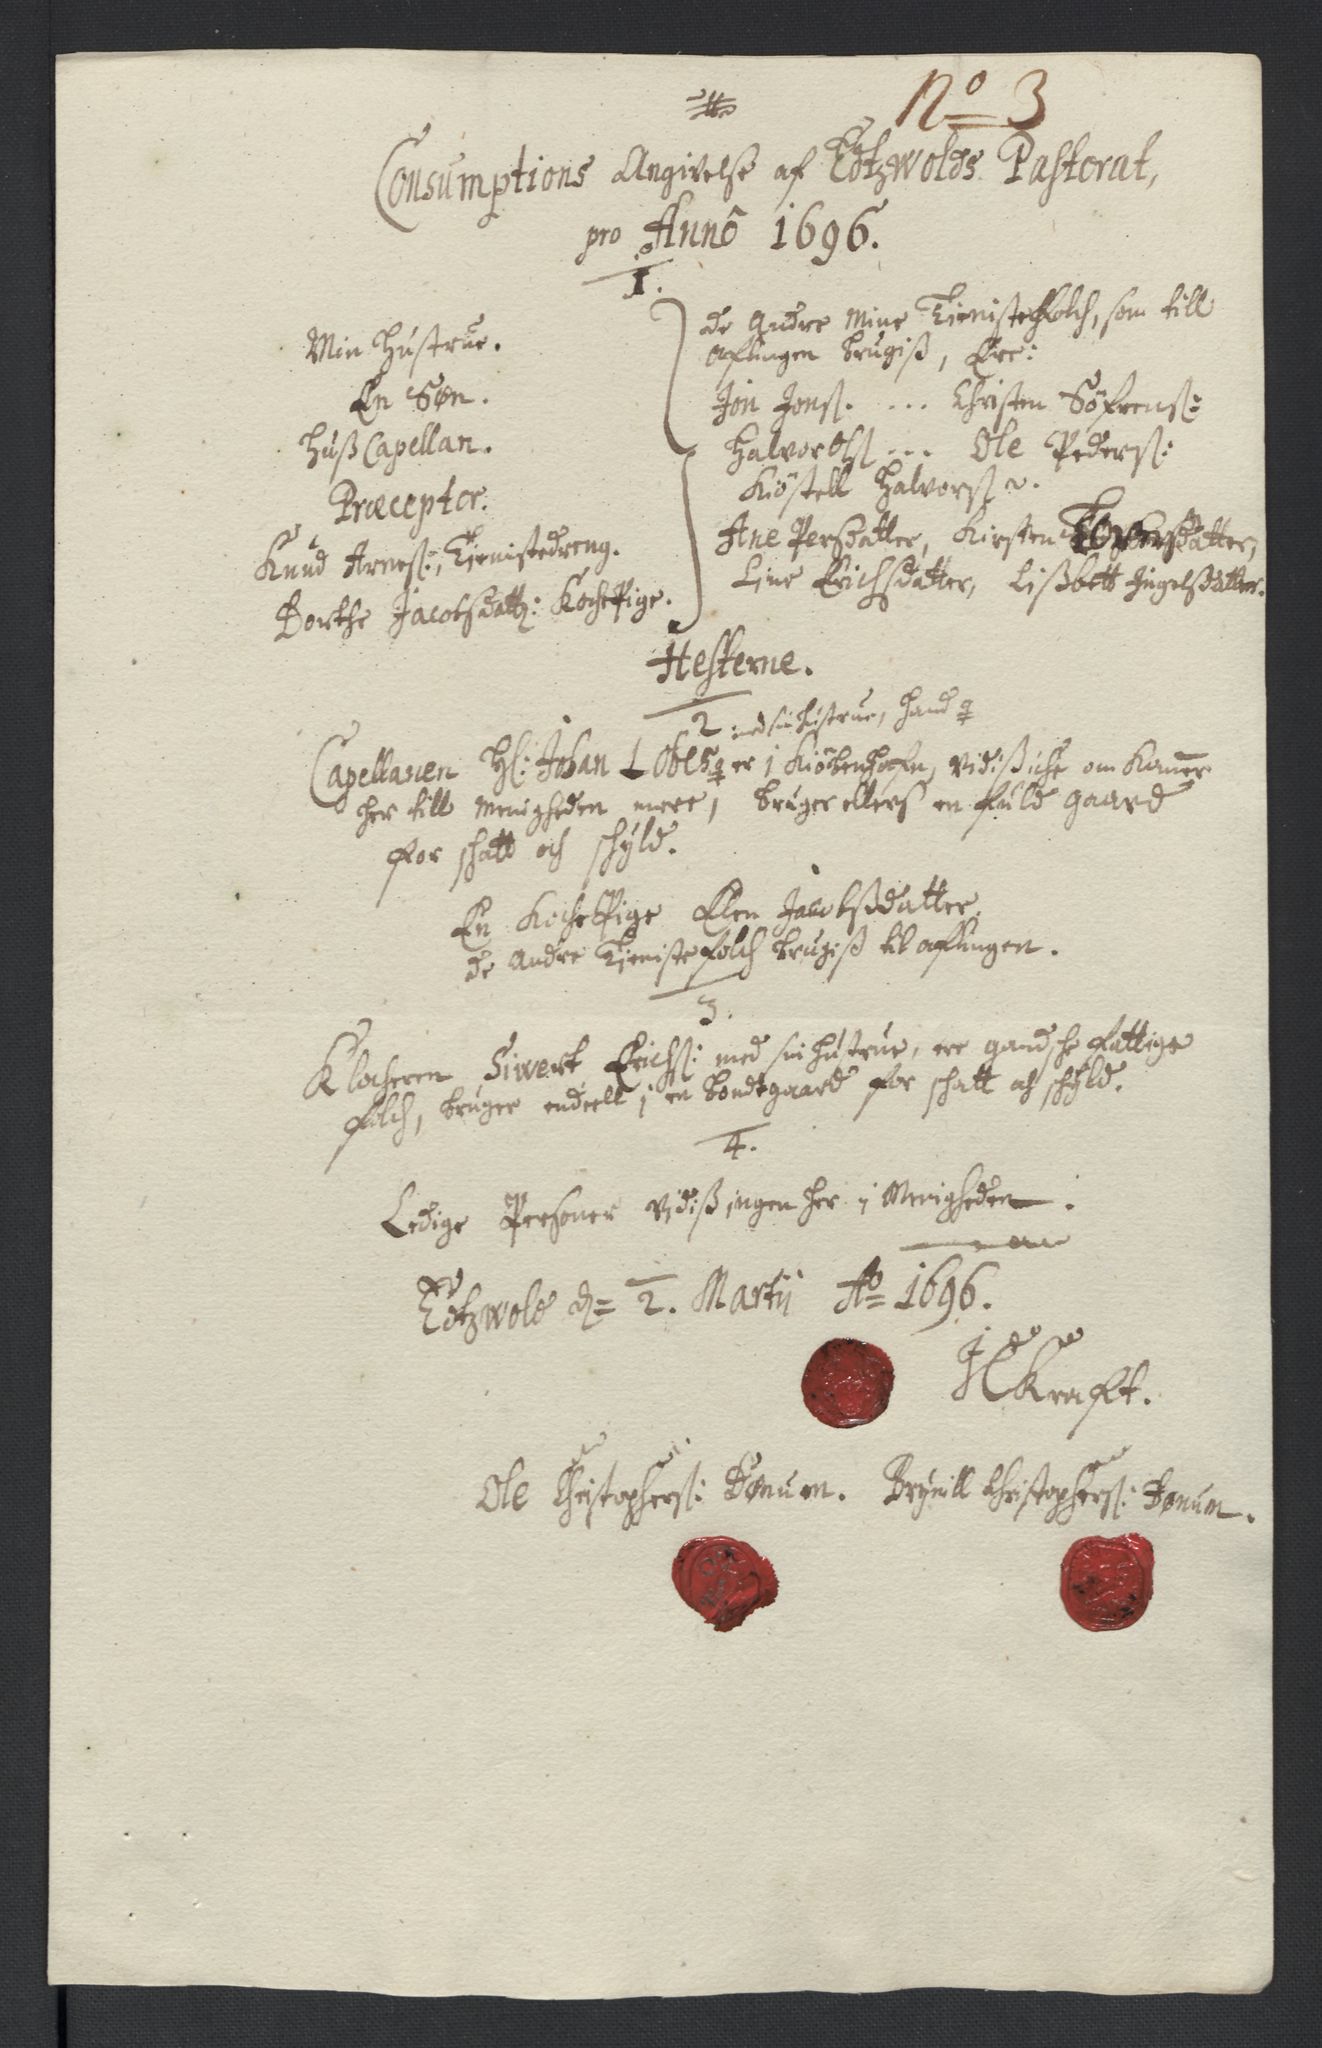 No 3
Consumptions Angivelse af Edtzwolds Pastorat,
pro Anno 1696.
1.
Min Hustrue.
En Søn.
Huß Capellan.
Præceptor.
Knud Arneß:, Tienistedreng.
Dorthe Jacobsdatt: Kochepige.
de Andre Mine Tienistefolch, som till
aflingen brugiß, Ere:
Jon Jonß. ... Christen Söfrenß:
Halvor Olß ... Ole Pederß:
Kiöstell Halvorß.
Ane Persdatter, Kirsten datter,
Line Erichsdatter, Lißbett Ingelsdatter.
Hesterne.
2
med sin hustrue, hand
Capellanen Hl: Johan er i Kiöbenhafn, vidiß iche om Kommer
her till menigheden mere, bruger ellers en fuld gaard
for schatt och schyld.
En Kochepige Elen Jacobsdatter.
de Andre Tieniste folch brugiß til aflingen.
3.
Klocheren Siwert Erichß: med sin hustrue, ere gandsche fattige
folch, bruger endeell i en bondegaard for schatt och schyld.
4.
Ledige Personer vidiß ingen her i Menigheden.
Edtzwold d= 2. Martij Ao 1696.
JCKraft.
Ole Christopherß: Dønum. Brynill Christopherß: Dønum.